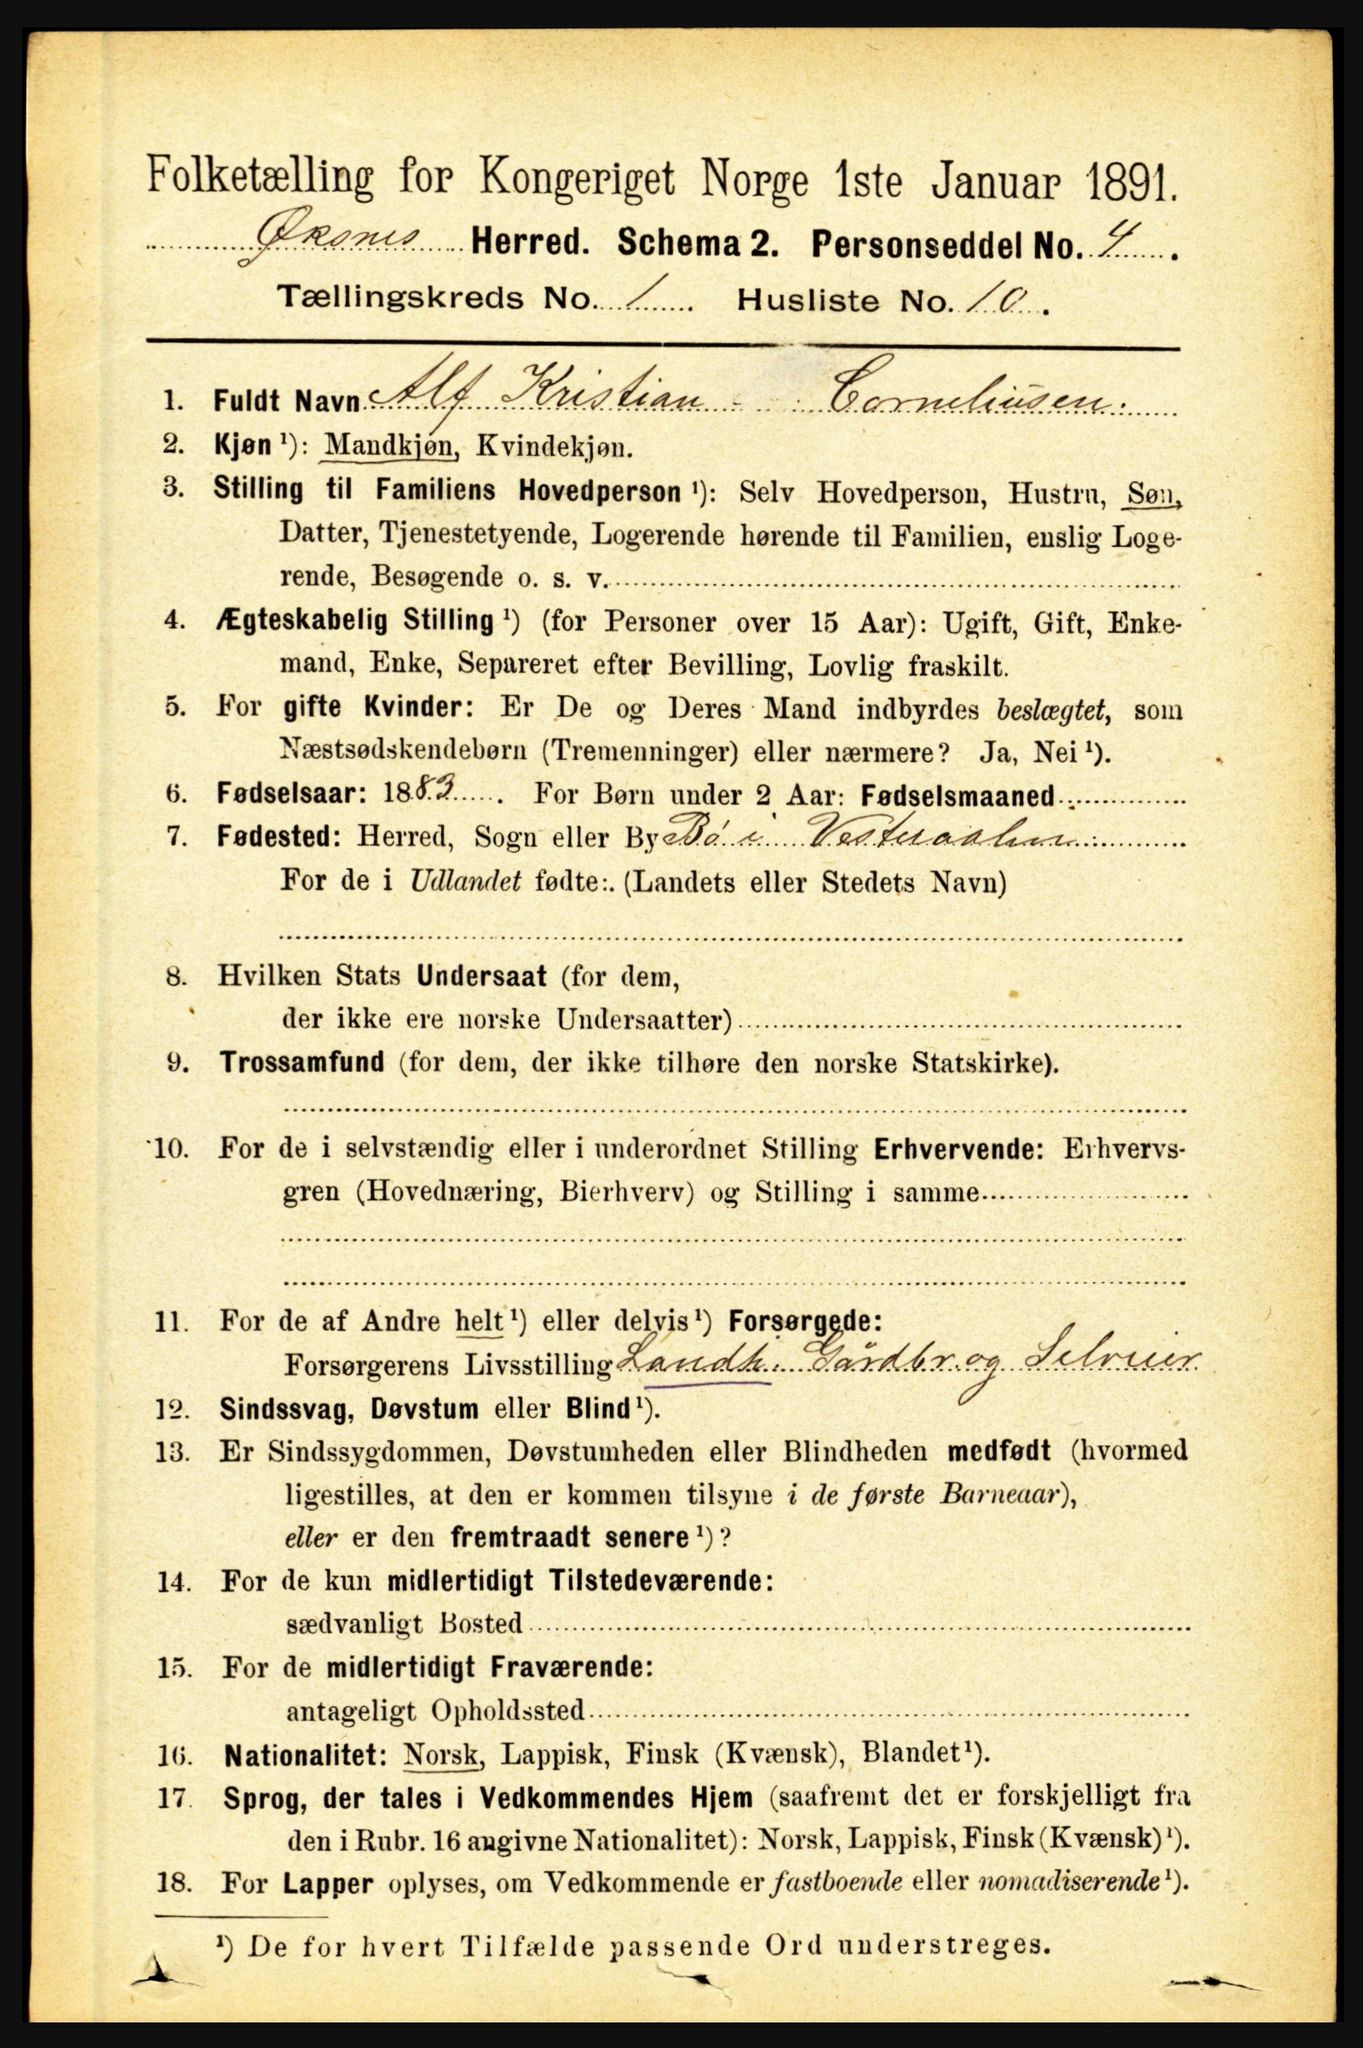 Folketælling for Kongeriget Norge 1ste Januar 1891.
Øksnes Herred. Schema 2. Personseddel No. 4.
Tællingskreds No. 1 Husliste No. 10.
1. Fuldt Navn Alf Kristian Corneliusen.
2. Kjøn ¹): Mandkjøn, Kvindekjøn.
3. Stilling til Familiens Hovedperson ¹): Selv Hovedperson, Hustru, Søn,
Datter, Tjenestetyende, Logerende hørende til Familien, enslig Loge-
rende, Besøgende o. s. v.
4. Ægteskabelig Stilling ¹) (for Personer over 15 Aar): Ugift, Gift, Enke-
mand, Enke, Separeret efter Bevilling, Lovlig fraskilt.
5. For gifte Kvinder: Er De og Deres Mand indbyrdes beslægtet, som
Næstsødskendebørn (Tremenninger) eller nærmere? Ja, Nei ¹).
6. Fødselsaar: 1883. For Børn under 2 Aar: Fødselsmaaned
7. Fødested: Herred, Sogn eller By Bø i Vesteraalen
For de i Udlandet fødte: (Landets eller Stedets Navn)
8. Hvilken Stats Undersaat (for dem,
der ikke ere norske Undersaatter)
9. Trossamfund (for dem, der ikke tilhøre den norske Statskirke).
10. For de i selvstændig eller i underordnet Stilling Erhvervende: Erhvervs-
gren (Hovednæring, Bierhverv) og Stilling i samme
11. For de af Andre helt ¹) eller delvis ¹) Forsørgede:
Forsørgerens Livsstilling Landh. Gårdbr. og Selveier
12. Sindssvag, Døvstum eller Blind ¹).
13. Er Sindssygdommen, Døvstumheden eller Blindheden medfødt (hvormed
ligestilles, at den er kommen tilsyne i de første Barneaar),
eller er den fremtraadt senere ¹)?
14. For de kun midlertidigt Tilstedeværende:
sædvanligt Bosted
15. For de midlertidigt Fraværende:
antageligt Opholdssted
16. Nationalitet: Norsk, Lappisk, Finsk (Kvænsk), Blandet ¹).
17. Sprog, der tales i Vedkommendes Hjem (saafremt det er forskjelligt fra
den i Rubr. 16 angivne Nationalitet): Norsk, Lappisk, Finsk (Kvænsk) ¹).
18. For Lapper oplyses, om Vedkommende er fastboende eller nomadiserende ¹).
¹) De for hvert Tilfælde passende Ord understreges.